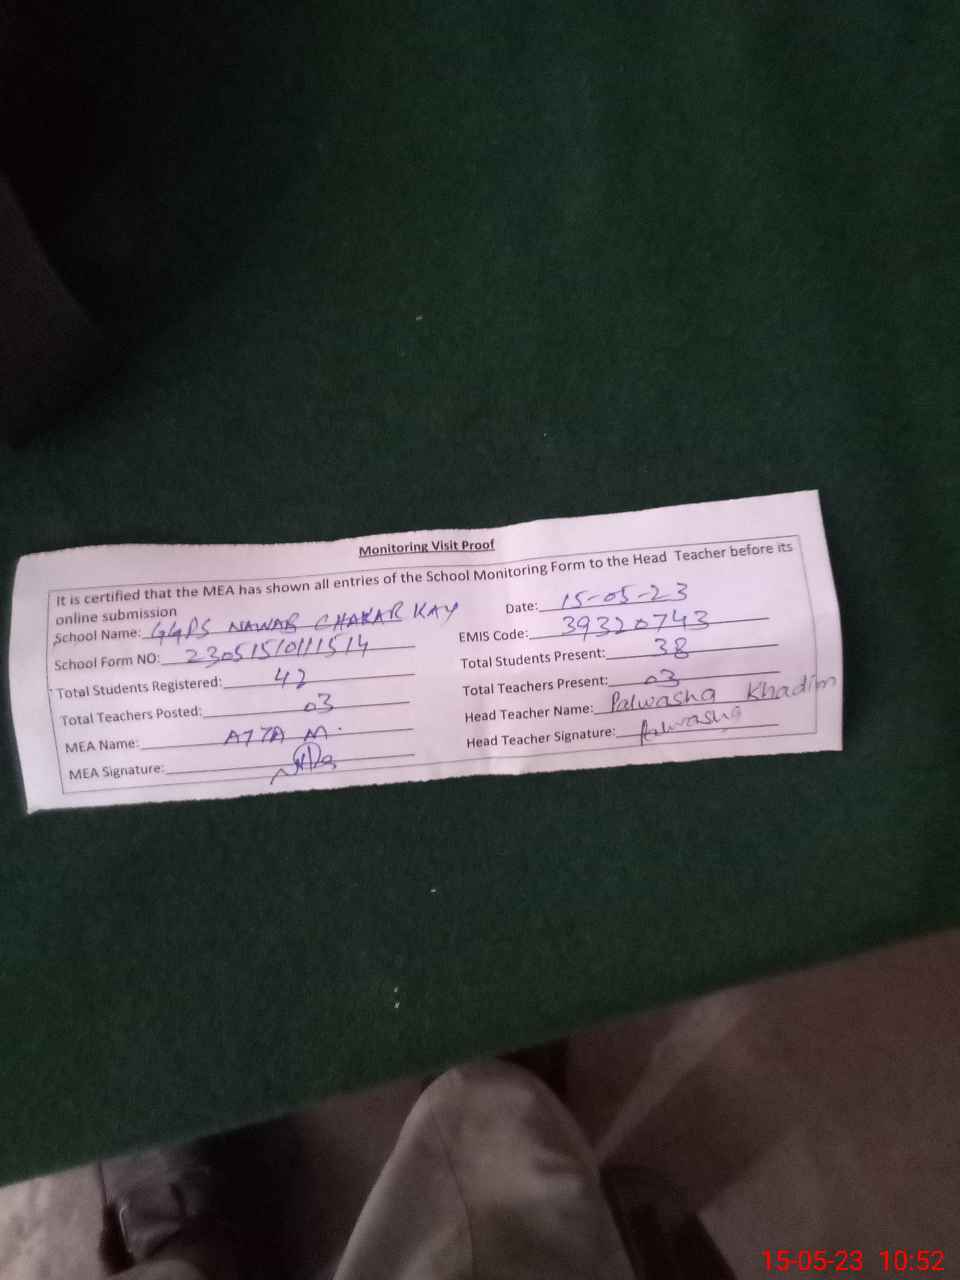 Monitoring Visit Proof
It is certified that the MEA has shown all entries of the School Monitoring Form to the Head Teacher before its
online submission
School Name: GGPS NAWAB CHAKAR KAY Date: 15-05-23
School Form NO: 23051510111514 EMIS Code: 39320743
Total Students Registered: 42 Total Students Present: 38
Total Teachers Posted: 03 Total Teachers Present: 03
MEA Name: ATTA M. Head Teacher Name: Palwasha Khadim
MEA Signature: Head Teacher Signature: Palwasha
15-05-23 10:52